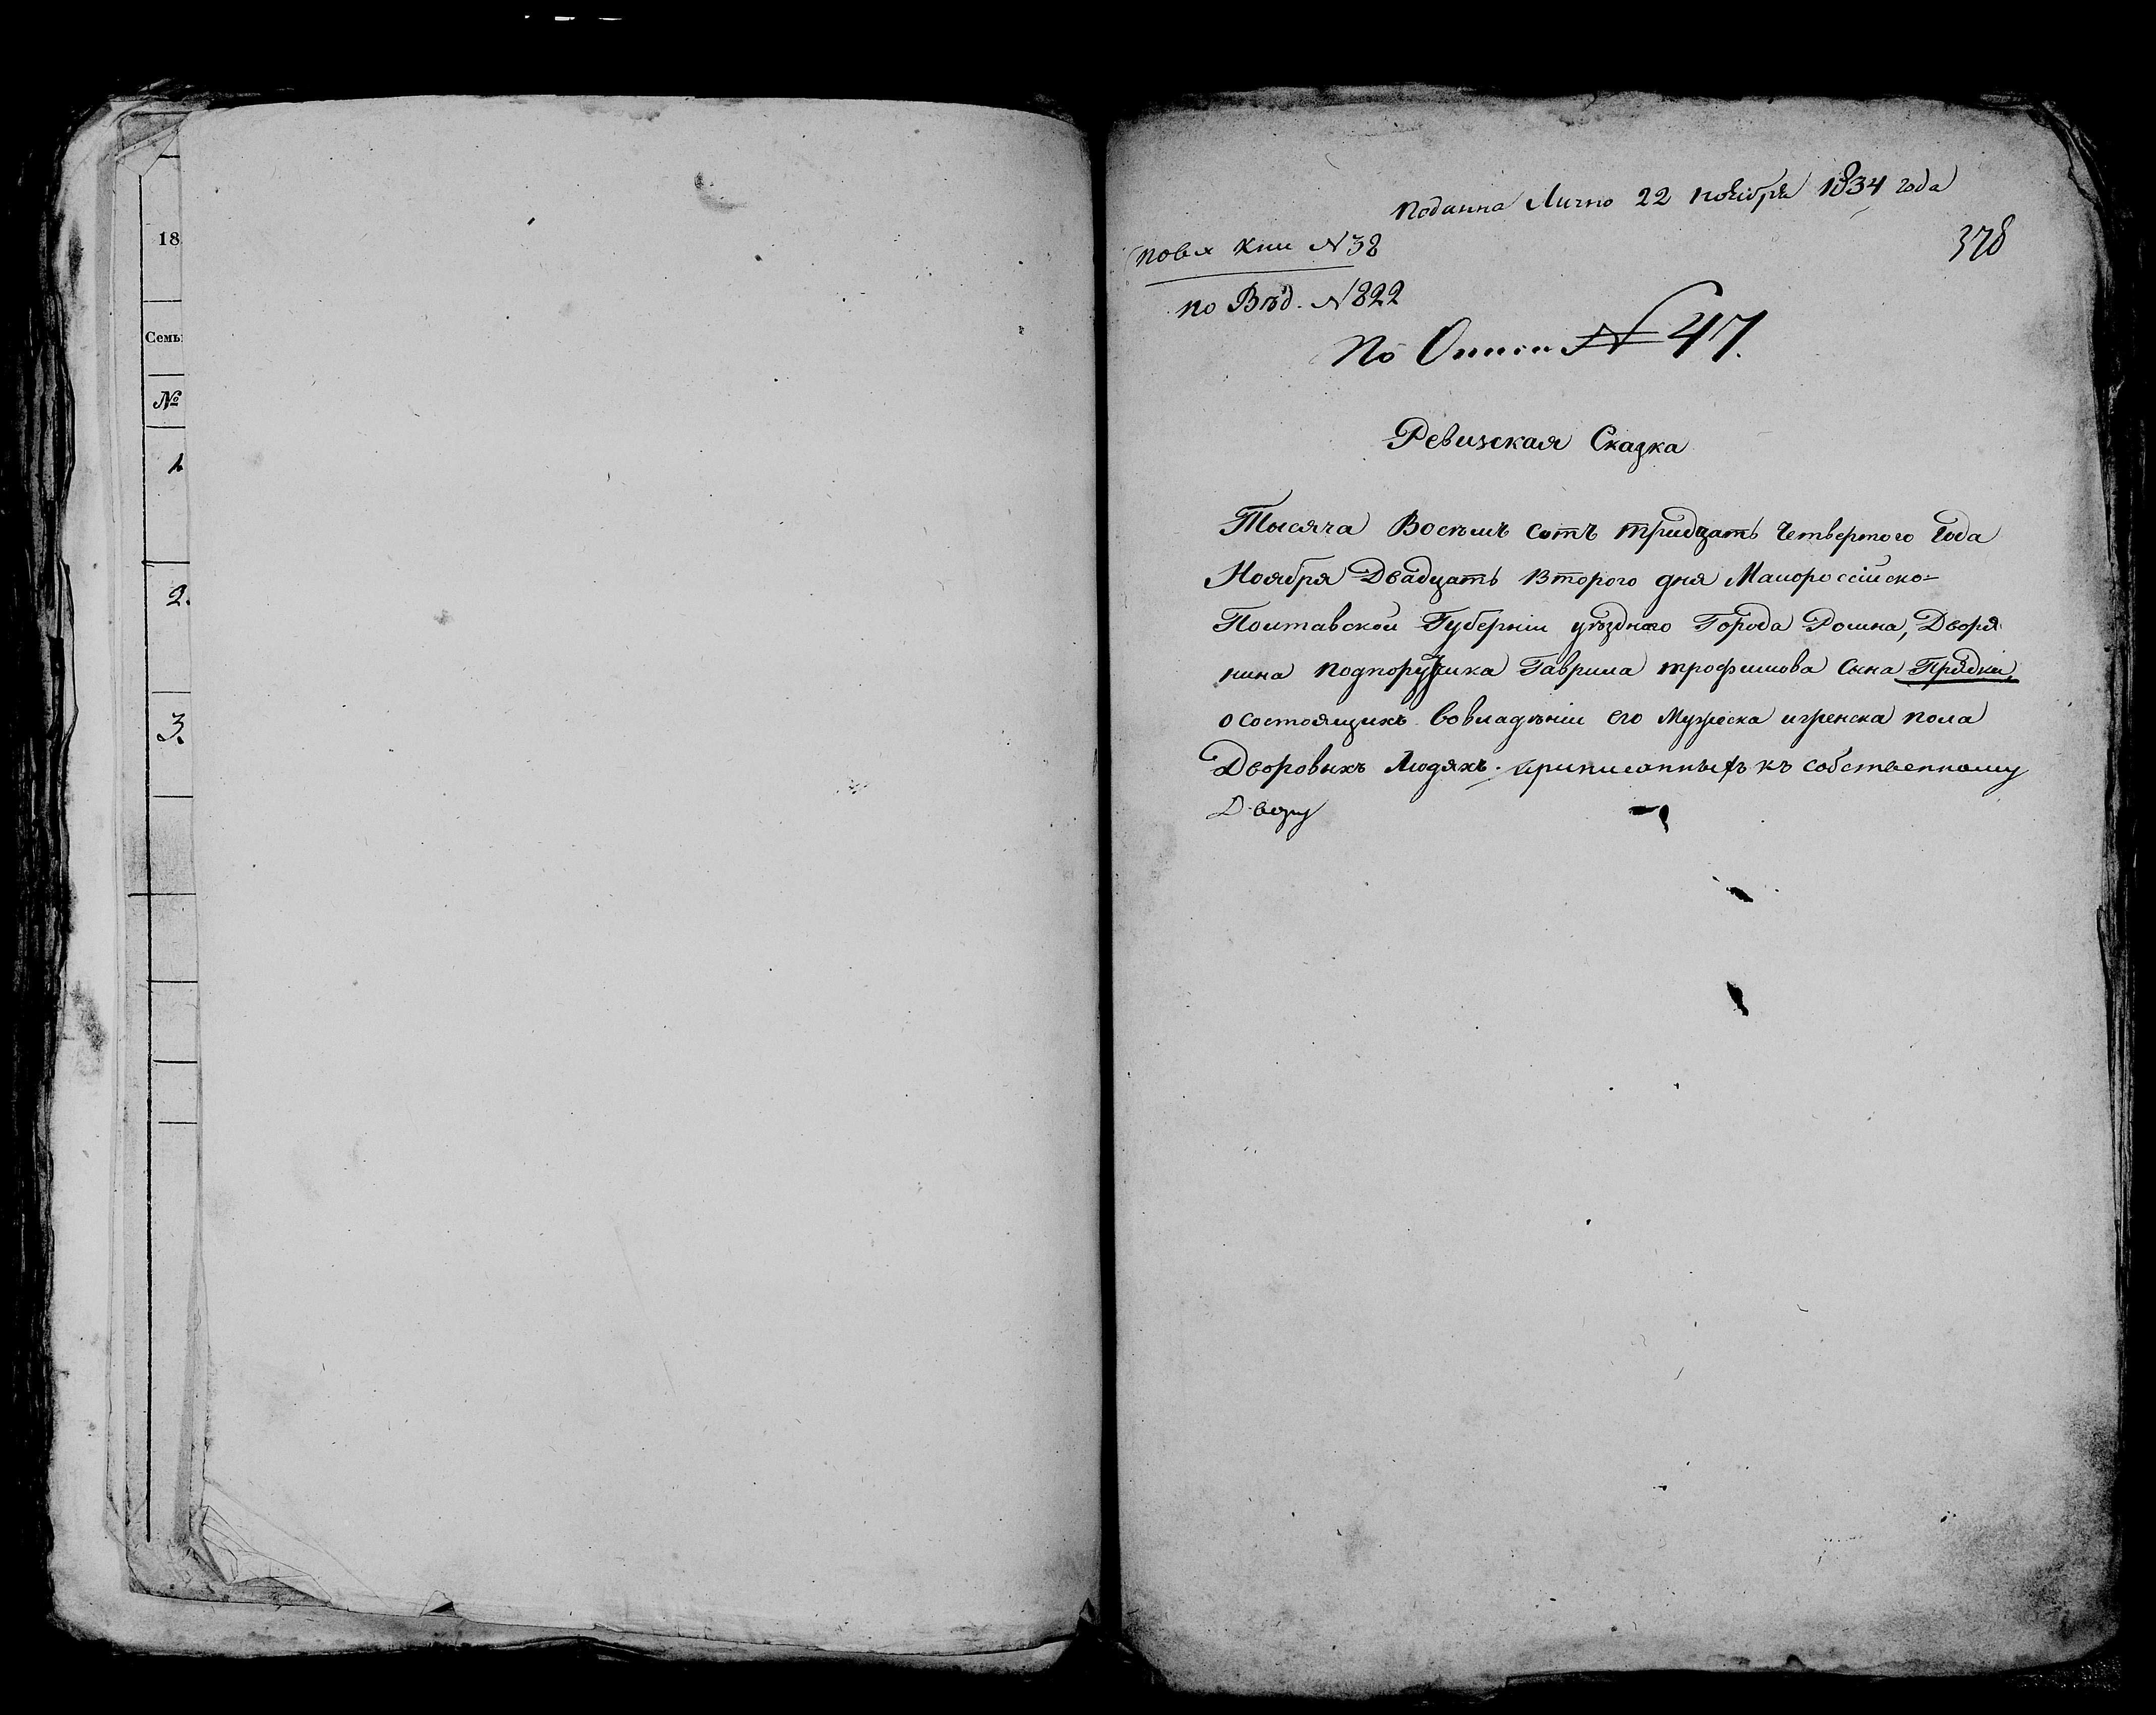 18
Семь
№
1
2.
3.
Поданна Лично 22 ноября 1834 года
378
по вх Кни N 38
по Вѣд. N 822
По Описи № 47.
Ревизская Сказка
Тысяча Восемъ сотъ тридцать Четвертого Года
Ноября Двадцать Второго дня Малороссійско-
Полтавской Губерніи уѣздного Города Ромна, Дворя
нина подпоручика Гаврила трофимова Сына Прядки,
о состоящихъ во владѣніи его Мужеска и женска пола
Дворовыхъ Людяхъ. приписанныхъ къ собственному
Двору